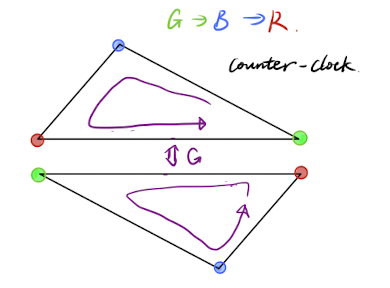 G → B → R.
counter-clock.
⇕ G